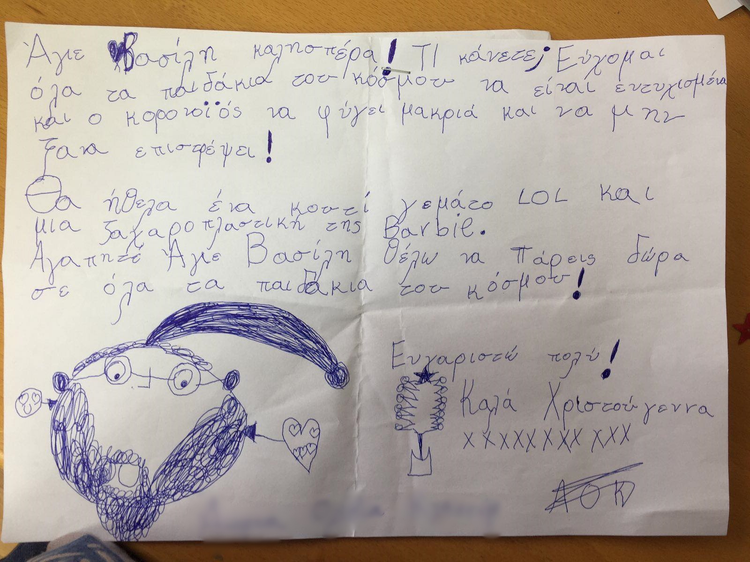 Άγιε Βασίλη καλησπέρα! Τι κάνετε; Εύχομαι
όλα τα παιδάκια του κόσμου να είναι ευτυχισμένα
και ο κορονοϊός να φύγει μακριά και να μην
ξανα επιστρέψει!
Θα ήθελα ένα κουτί γεμάτο LOL και
μια ζαχαροπλαστική της Barbie.
Αγαπητέ Άγιε Βασίλη θέλω να πάρεις δώρα
σε όλα τα παιδάκια του κόσμου!
Ευχαριστώ πολύ!
Καλά Χριστούγεννα
xxxxxxxx xxx